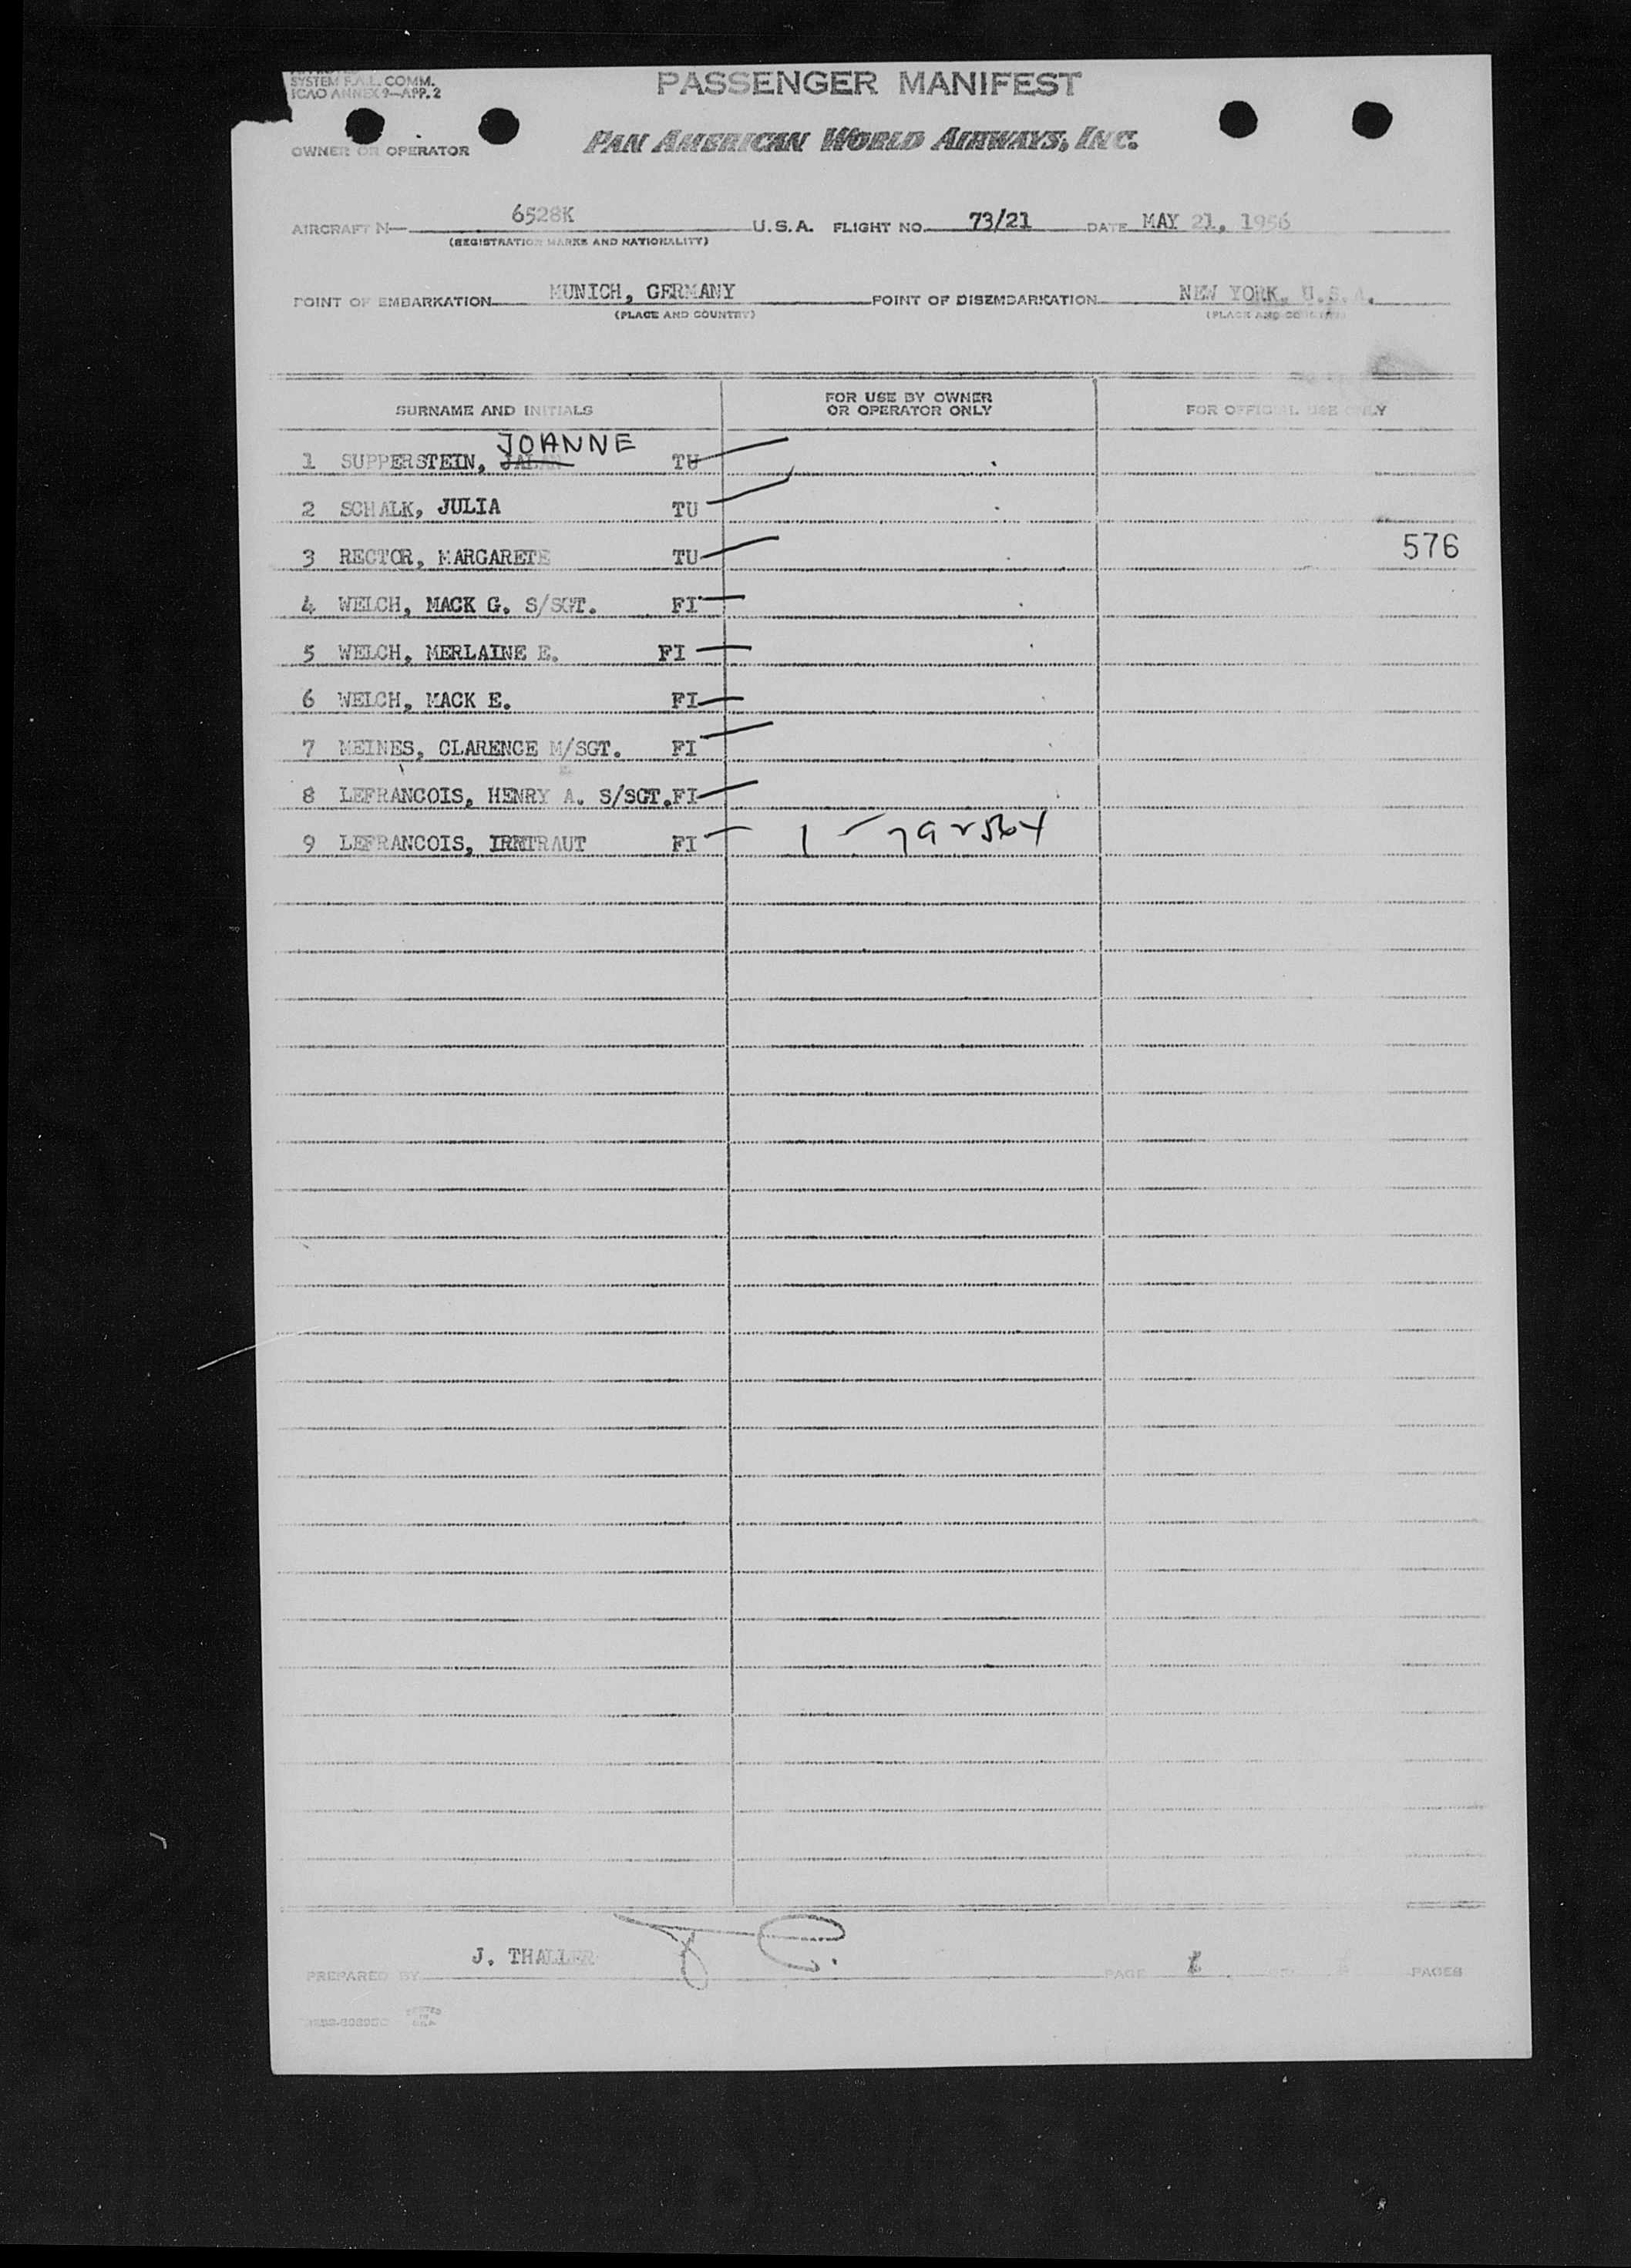 SYSTEM F.A.L. COMM.
ICAO ANNEX 9—APP. 2
PASSENGER MANIFEST
OWNER OR OPERATOR
PAN AMERICAN WORLD AIRWAYS, INC.
AIRCRAFT N— 6528K U.S.A. FLIGHT NO. 73/21 DATE MAY 21, 1956
(REGISTRATION MARKS AND NATIONALITY)
POINT OF EMBARKATION MUNICH, GERMANY POINT OF DISEMBARKATION NEW YORK, U.S.A.
(PLACE AND COUNTRY) (PLACE AND COUNTRY)
SURNAME AND INITIALS FOR USE BY OWNER OR OPERATOR ONLY FOR OFFICIAL USE ONLY
JOANNE
1 SUPPERSTEIN, TU
2 SCHALK, JULIA TU
3 RECTOR, MARGARETE TU 576
4 WELCH, MACK G. S/SGT. FI
5 WELCH, MERLAINE E. FI
6 WELCH, MACK E. FI
7 MEINES, CLARENCE M/SGT. FI
8 LEFRANCOIS, HENRY A. S/SGT. FI
9 LEFRANCOIS, IRMTRAUT FI
J. THALLER
PREPARED BY PAGE 1 PAGES
PRINTED IN U.S.A.